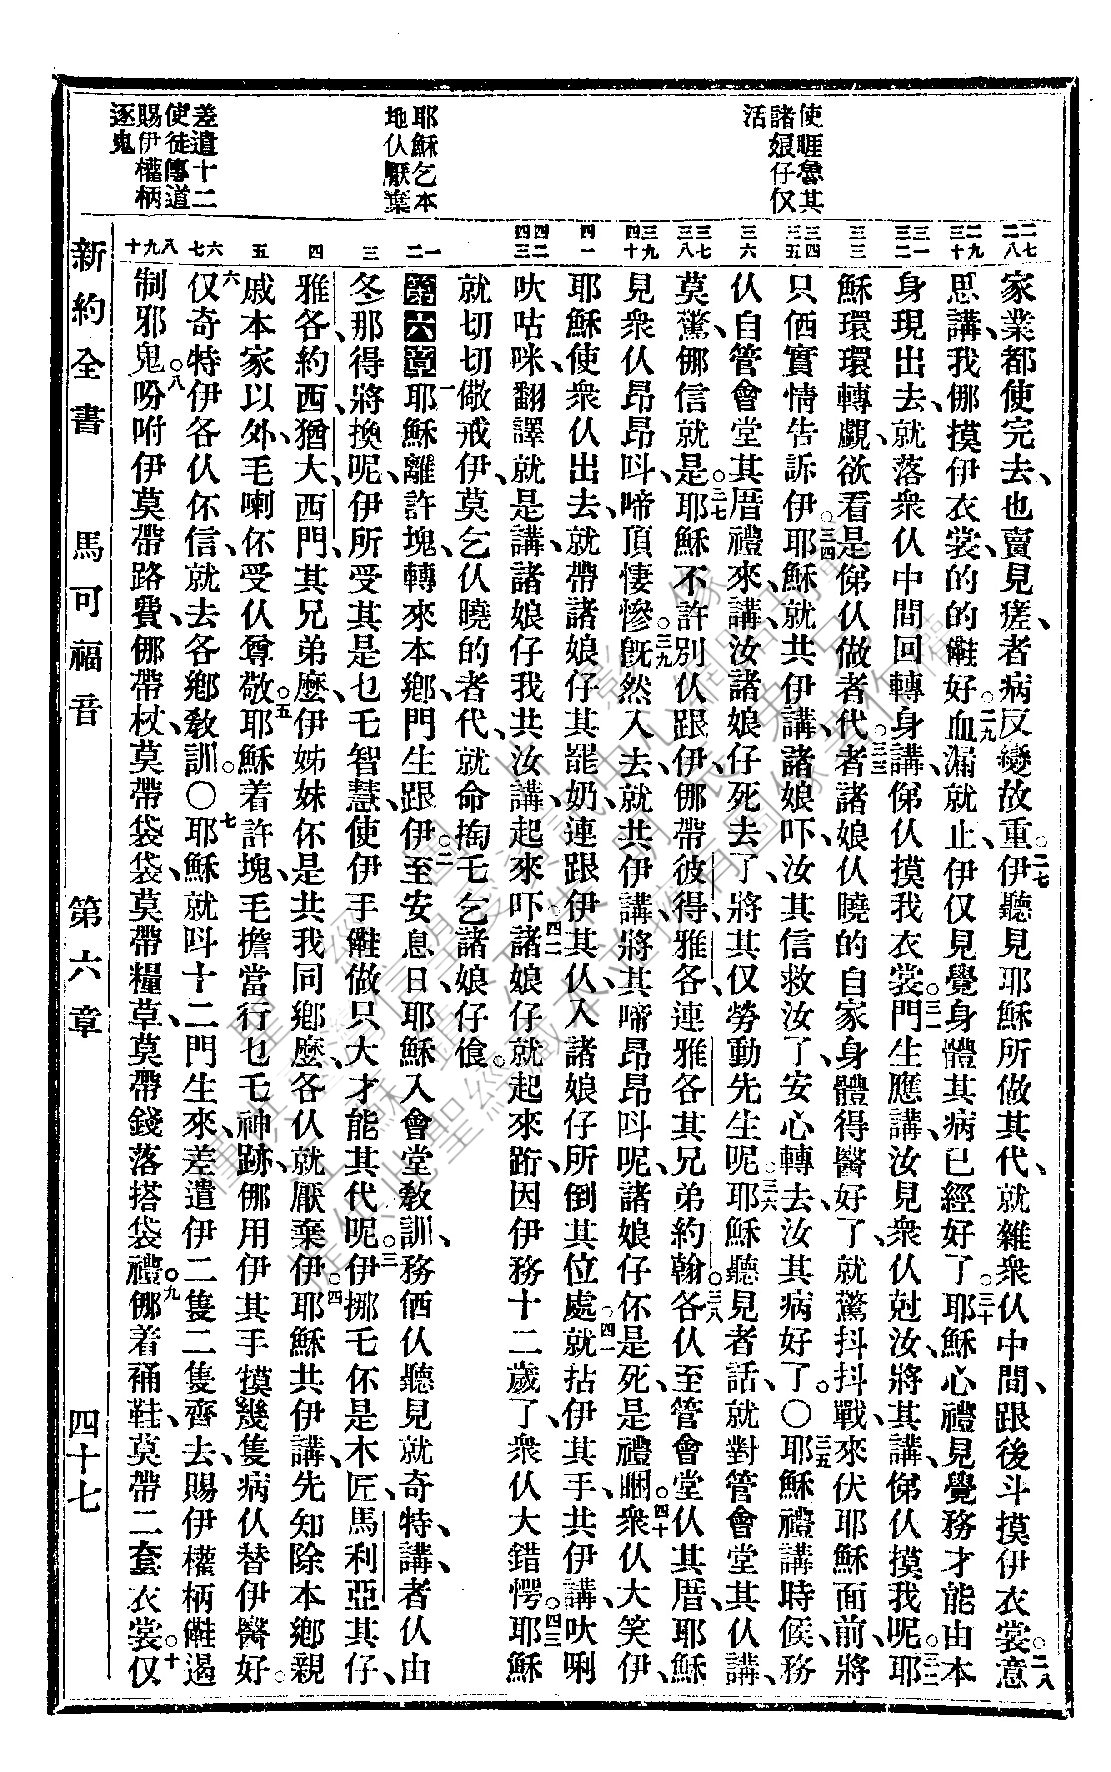 使睚魯其
諸娘仔仅
活
耶穌乞本
地仈厭棄
差遣十二
使徒傳道
賜伊權柄
逐鬼
二七 二八
二九 三十
三一 三二
三三
三四 三五
三六
三七 三八
三九 四十
四一
四二 四三
一 二
三
四
五
六 七
八 九 十
家業都使完去、也賣見瘥、者病反變故重。二七伊聽見耶穌所做其代、就雜衆仈中間、跟後斗摸伊衣裳。二八意
思講、我㑚摸伊衣裳、的的𡅏好。二九血漏就止、伊仅見覺身體其病已經好了。三十耶穌心禮見覺務才能由本
身現出去、就落衆仈中間回轉身講、俤仈摸我衣裳。三一門生應講、汝見衆仈尅汝、將其講、俤仈摸我呢。三二耶
穌環環轉覷、欲看是俤仈做者代。三三者諸娘仈曉的自家身體得醫好了、就驚抖抖戰、來伏耶穌面前、將
只個實情告訴伊。三四耶穌就共伊講、諸娘吓、汝其信救汝了、安心轉去、汝其病好了。〇三五耶穌禮講時候、務
仈自管會堂其厝禮來講、汝諸娘仔死去了、將其仅勞動先生呢。三六耶穌聽見者話、就對管會堂其仈講、
莫驚、㑚信就是。三七耶穌不許別仈跟伊、㑚帶彼得、雅各、連雅各其兄弟約翰。三八各仈至管會堂仈其厝、耶穌
見衆仈昂昂呌、啼頂悽慘。三九旣然入去、就共伊講、將其啼昂昂呌呢、諸娘仔伓是死、是禮睏。四十衆仈大笑伊、
耶穌使衆仈出去、就帶諸娘仔其罷奶、連跟伊其仈、入諸娘仔所倒其位處。四一就拈伊其手、共伊講、吙唎
吙咕咪、翻譯就是講、諸娘仔我共汝講、起來吓。四二諸娘仔就起來跻、因伊務十二歲了、衆仈大錯愕。四三耶穌
就切切儆戒伊、莫乞仈曉的者代、就命掏乇乞諸娘仔食。
第六章一耶穌離許塊、轉來本鄉、門生跟伊。二至安息日、耶穌入會堂教訓、務個仈聽見就奇特、講、者仈由
冬那得將換呢、伊所受其是乜乇智慧、使伊手𡅏做只大才能其代呢。三伊挪乇伓是木匠、馬利亞其仔、
雅各、約西、猶大、西門、其兄弟麼、伊姊妹伓是共我同鄉麼、各仈就厭棄伊。四耶穌共伊講、先知除本鄉親
戚本家以外、毛喇伓受仈尊敬。五耶穌着許塊、毛擔當行乜乇神跡、㑚用伊其手摸幾隻病仈、替伊醫好。
六仅奇特伊各仈伓信、就去各鄉教訓。〇七耶穌就呌十二門生來、差遣伊二隻二隻齊去、賜伊權柄𡅏遏
制邪鬼。八吩咐伊莫帶路費、㑚帶杖、莫帶袋、莫帶糧草、莫帶錢落搭袋禮。九㑚着䘵鞋、莫帶二套衣裳。十仅
新約全書 馬可福音 第六章 四十七